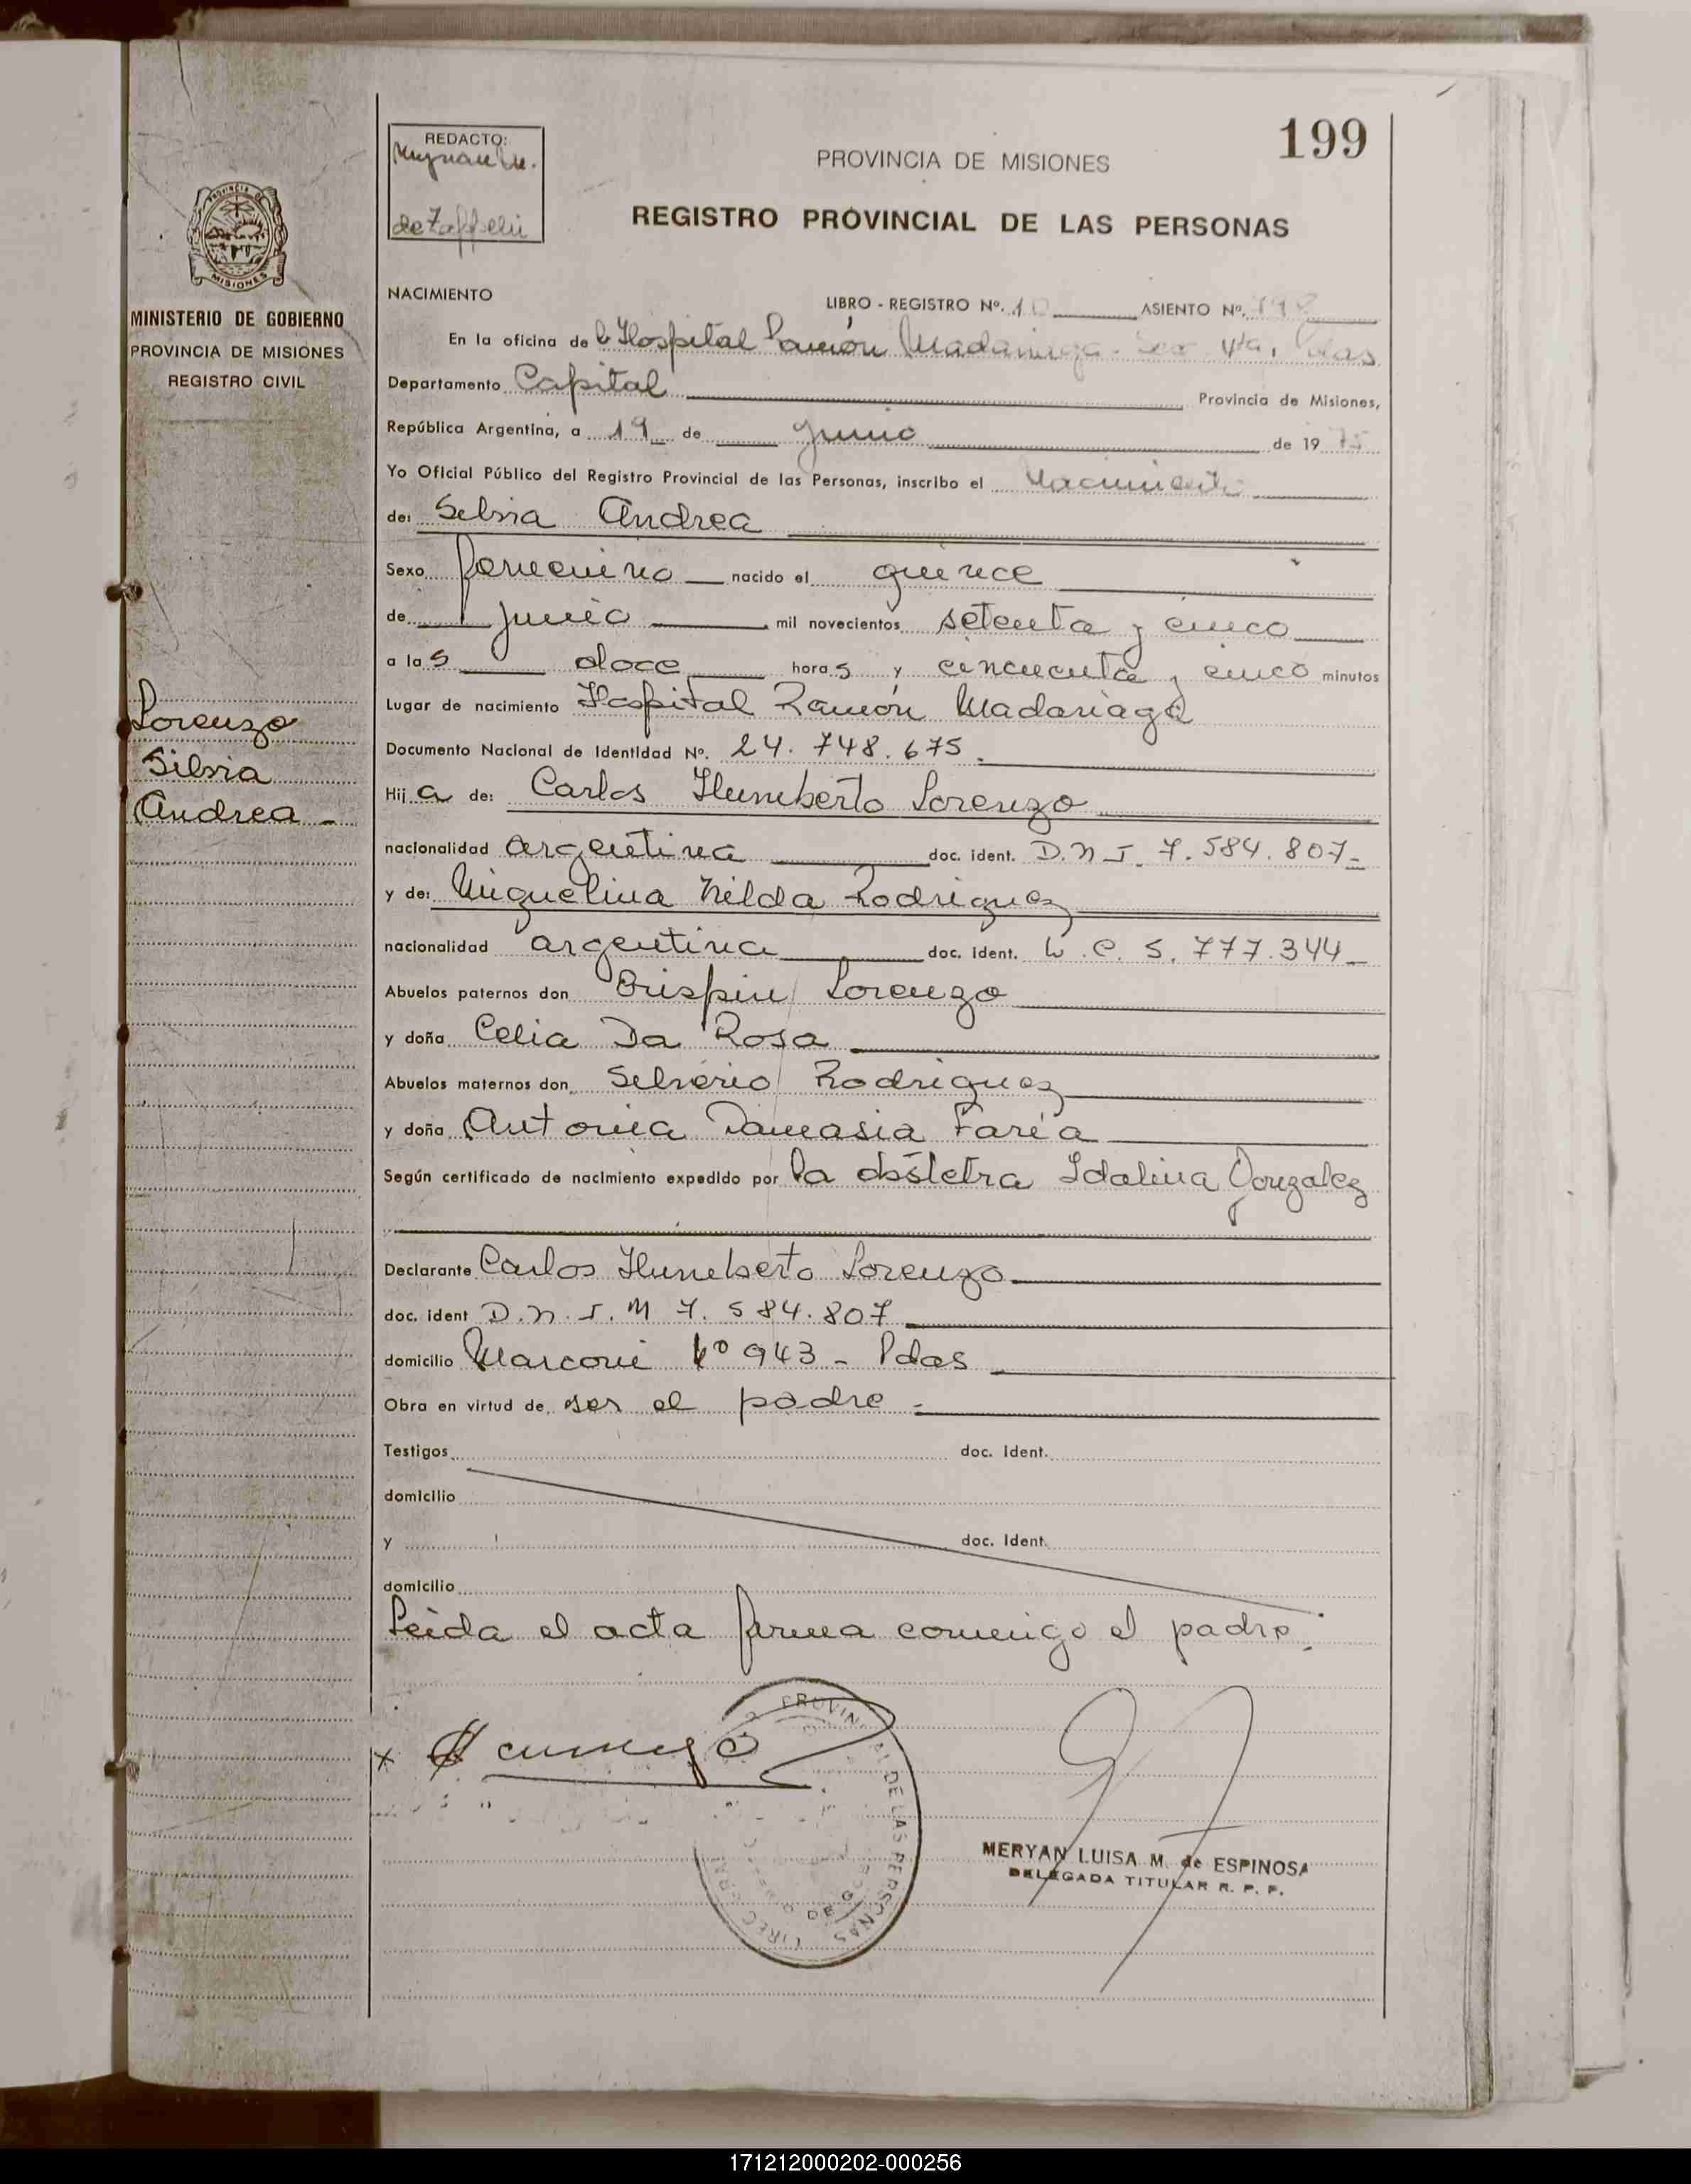 199
REDACTO:
PROVINCIA DE MISIONES
REGISTRO PROVINCIAL DE LAS PERSONAS
MISIONES
MINISTERIO DE GOBIERNO
PROVINCIA DE MISIONES
REGISTRO CIVIL
NACIMIENTO
LIBRO - REGISTRO Nº. 10 ASIENTO Nº.
En la oficina del Hospital Ramón Madariaga. Sec 4ta, Pdas
Departamento Capital Provincia de Misiones,
República Argentina, a 19 de Junio de 1975
Yo Oficial Público del Registro Provincial de las Personas, inscribo el Nacimiento
de: Silvia Andrea
Sexo femenino nacido el quince
de junio mil novecientos setenta y cinco
a las doce horas y cincuenta y cinco minutos
Lugar de nacimiento Hospital Ramón Madariaga
Documento Nacional de Identidad Nº. 24.748.675.
Lorenzo
Silvia
Andrea -
Hija de: Carlos Humberto Lorenzo
nacionalidad argentina doc. ident. D.N.I. 7.584.807-
y de: Miguelina Nilda Rodriguez
nacionalidad argentina doc. ident. L.C. 5.777.344-
Abuelos paternos don Crispin Lorenzo
y doña Celia Da Rosa
Abuelos maternos don Silverio Rodriguez
y doña Antonia Damasia Faría
Según certificado de nacimiento expedido por la obstetra Idalina Gonzalez
Declarante Carlos Humberto Lorenzo
doc. ident D.N.I. M 7.584.807
domicilio Marconi Nº 943 - Pdas
Obra en virtud de ser el padre -
Testigos doc. Ident.
domicilio
y doc. Ident.
domicilio
Leida el acta firma conmigo el padre.
MERYAN LUISA M. de ESPINOSA
DELEGADA TITULAR R. P. P.
171212000202-000256